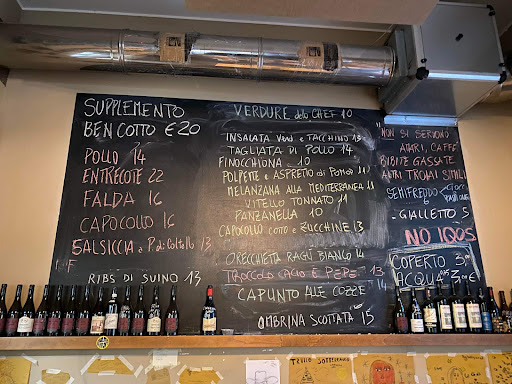 SUPPLEMENTO
BEN COTTO € 20
POLLO 14
ENTRECOTE 22
FALDA 16
CAPOCOLLO 16
SALSICCIA e P. di Coltello 13
RIBS DI SUINO 13
VERDURE dello CHEF 10
INSALATA Verdi e TACCHINO 13
TAGLIATA DI POLLO 14
FINOCCHIONA e 10
POLPETTE e ASPRETTO di POMOD 11
MELANZANA ALLA MEDITERRANEA 11
VITELLO TONNATO 11
PANZANELLA 10
CAPOCOLLO COTTO e ZUCCHINE 13
ORECCHIETTA RAGÙ BIANCO 14
TROCCOLO CACIO E PEPE 13
CAPUNTO ALLE COZZE 14
OMBRINA SCOTTATA 15
NON SI SERVONO
AMARI, CAFFÈ
BIBITE GASSATE
ALTRI TROIAI SIMILI
SEMIFREDDO
6
GIALLETTO 5
NO IQOS
COPERTO 3,00
ACQUA